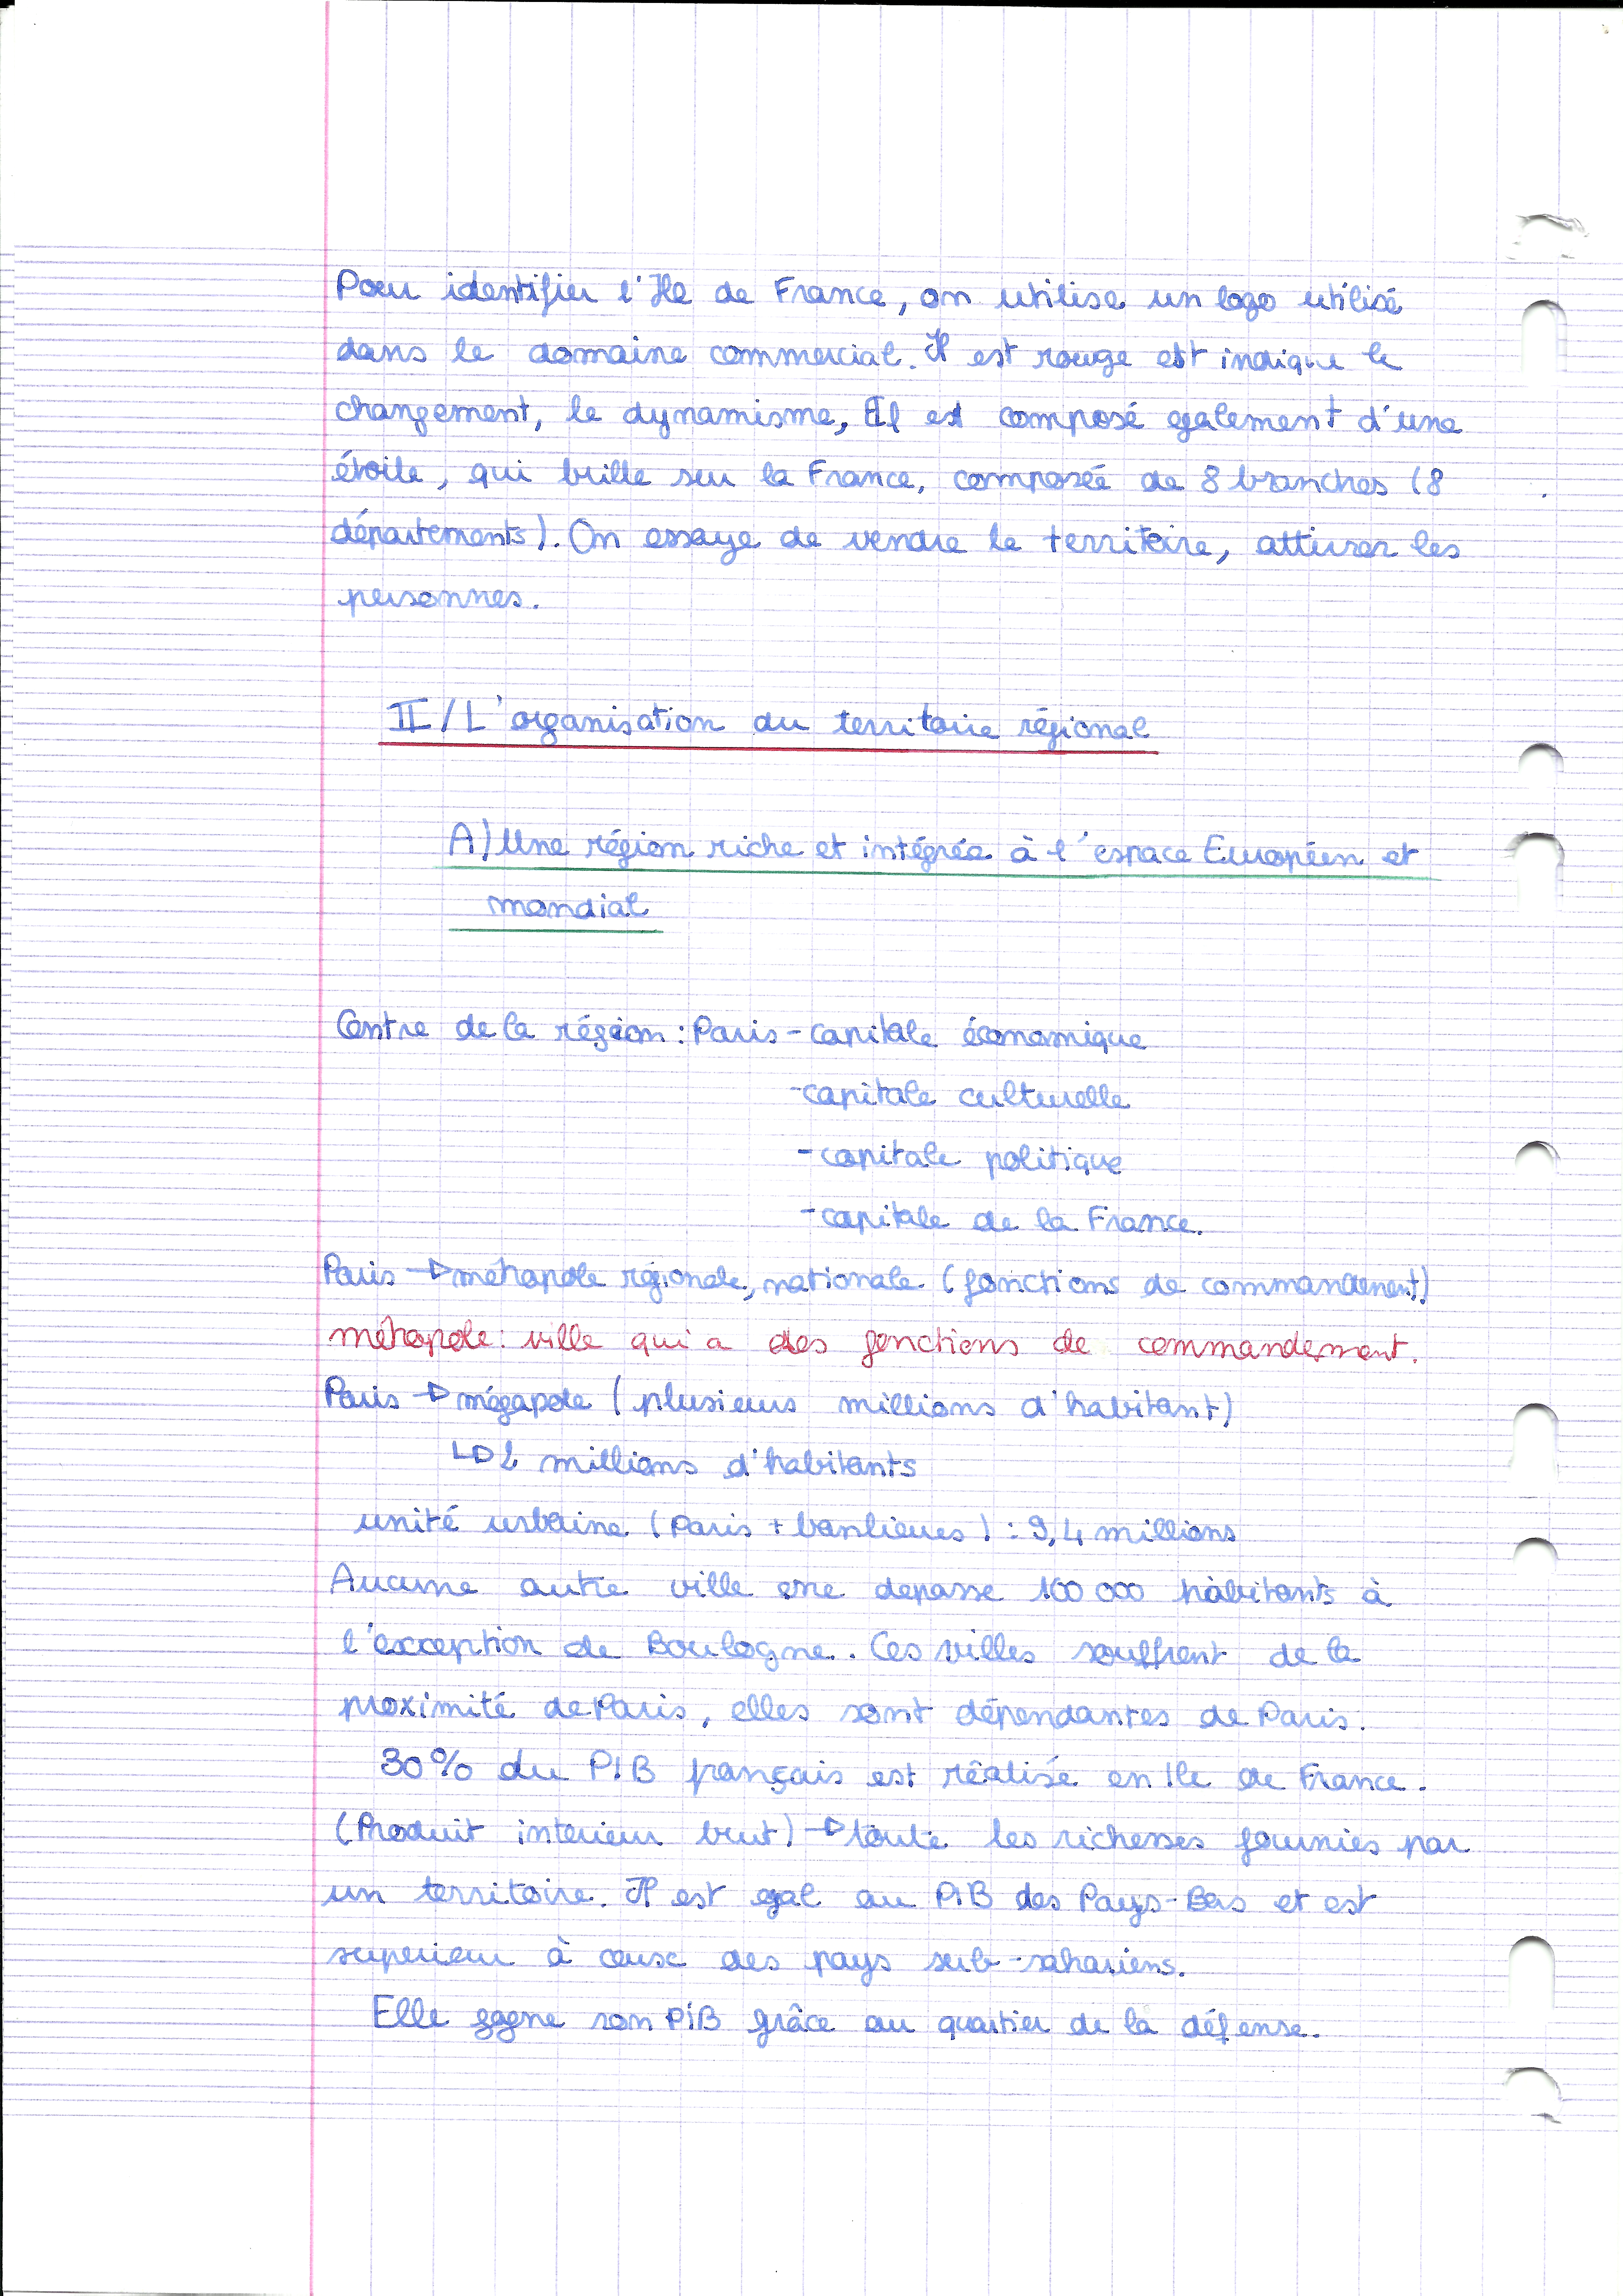 Pour identifier l'Ile de France, on utilise un logo utilisé
dans le domaine commercial. Il est rouge est indique le
changement, le dynamisme, Il est composé egalement d'une
étoile, qui brille sur la France, composée de 8 branches (8
départements). On essaye de vendre le territoire, attirer les
personnes.
II/L'organisation du territoire régional
A)Une région riche et intégrée à l'espace Européen et
mondial
Centre de la région : Paris - capitale économique
- capitale culturelle
- capitale politique
- capitale de la France.
Paris → métropole régionale, nationale (fonctions de commandement)
métropole : ville qui a des fonctions de commandement.
Paris → mégapole (plusieurs millions d'habitant)
↳ 2 millions d'habitants
unité urbaine (Paris + banlieues) : 9,4 millions
Aucune autre ville ne depasse 100 000 habitants à
l'exception de Boulogne. Ces villes souffrent de la
proximité de Paris, elles sont dépendantes de Paris.
30% du PIB français est réalisé en Ile de France.
(Produit interieur brut) → toute les richesses fournies par
un territoire. Il est egal au PIB des Pays-Bas et est
superieur à cause des pays sub-sahariens.
Elle gagne son PIB grâce au quartier de la défense.